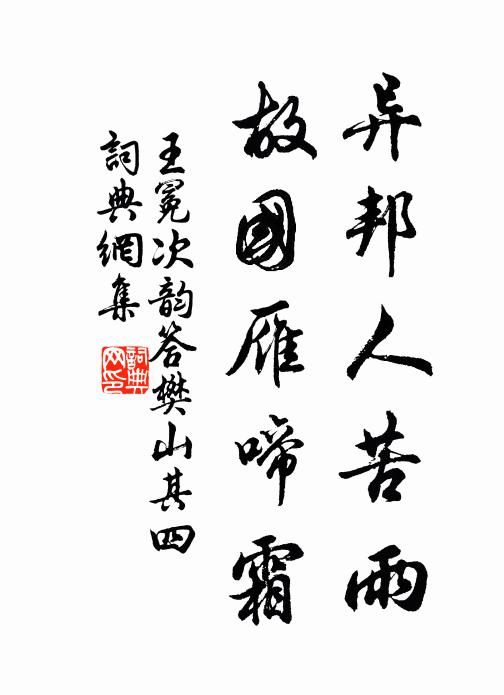 异邦人苦雨
故國雁啼霜
王冕次韵答樊山其四
詞典網集
詞典网印